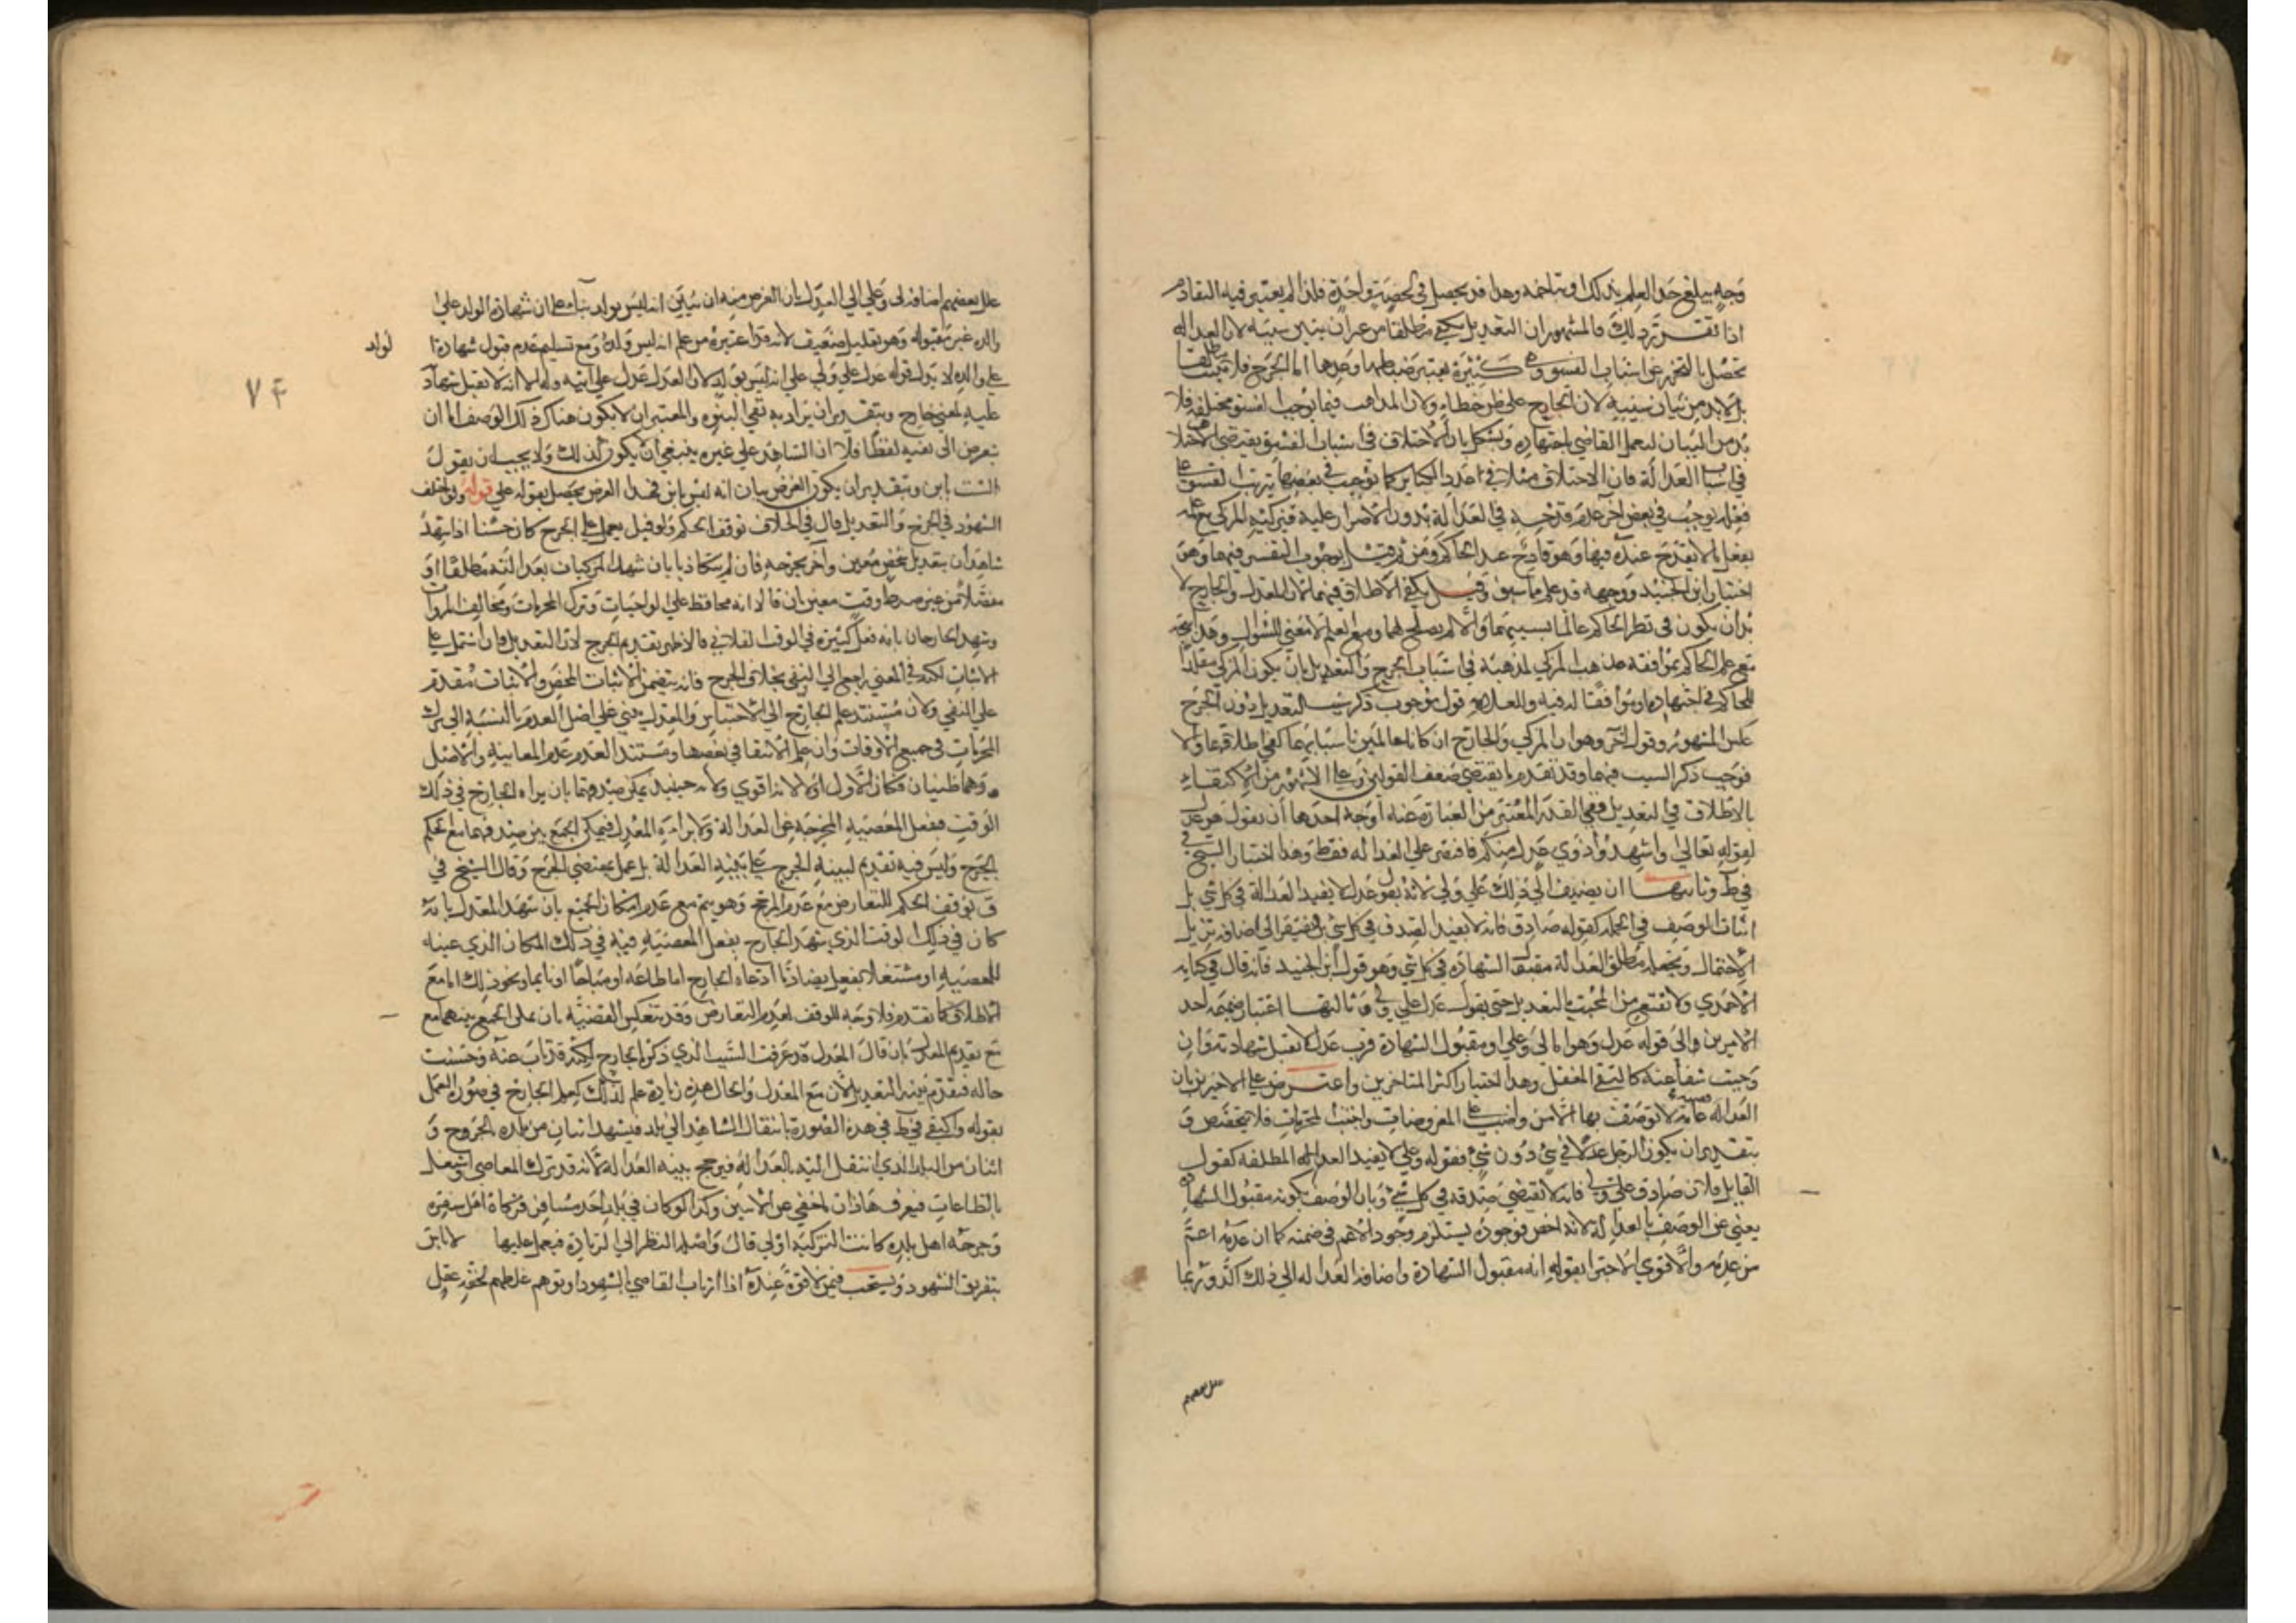 وجه يبلغ حد العلم بذلك او يتاخمه وهذا قد يحصل في لحصية واحدة فلذا لم يعتبر فيه التقادم
اذا تقرر ذلك فالمشهور ان التعديل يكفي مطلقا من غير ان يتبين سببه لان العدالة
تحصل بالتحرز عن اسباب الفسوق وهي كثيرة يعسر ضبطها وعدها اما الجرح فلا يثبت مطلقا
بل لابد من بيان سببه لان الجارح على ظن خطاء ولان المذاهب فيما يوجب الفسق مختلفة فلا
بد من البيان ليعمل القاضي باجتهاده ويشكل بان الاختلاف في اسباب الفسق يقتضي الاختلا
في اسباب العدالة فان الاختلاف مثلا في عدد الكباير كما يوجب في بعضها ترتب الفسق على
فعله يوجب في بعض آخر عدم قدحه في العدالة بدون الاصرار عليه فيزكيه المزكي مع علمه
بفعل ما لا يقدح عنده فيها وهو قادح عند الحاكم ومن ثم قيل بوجوب التفسير فيهما وهو
اختيار ابن الجنيد ووجهه قد علم مما سبق وقيل يكفي الاطلاق فيهما لان المعدل والجارح لا
بد ان يكون في نظر الحاكم عالما بسببهما والا لم يصلح لهما ومع العلم لا معنى للسؤال وهذا يتجه
مع علم الحاكم بموافقة مذهب المزكي لمذهبه في اسباب الجرح والتعديل بان يكون المزكي مقلدا
للحاكم في اجتهاده او موافقا له فيه وللعلامة قول بوجوب ذكر سبب التعديل دون الجرح
عكس المشهور وقول آخر وهو ان المزكي والجارح ان كانا عالمين باسبابهما كفى اطلاقهما والا
فوجب ذكر السبب فيهما وقد تقدم ما يقتضي ضعف القولين وعلى الاشهر من الاكتفاء
بالاطلاق في التعديل ففي القدر المعتبر من العبارة عنه اوجه احدها ان يقول هو عدل
لقوله تعالى واشهدوا ذوي عدل منكم فاقتصر على العدالة فقط وهذا اختيار الشيخ في
في ط وثانيها ان يضيف الى ذلك علي ولي لانه بقوله عدل لا يفيد العدالة في كل شي بل
اثبات الوصف في الجملة كقوله صادق فانه لا يفيد الصدق في كل شي بل يفتقر الى اضافة تزيل
الاحتمال وتجعله مطلق العدالة مقبول الشهادة في كل شي وهو قول ابن الجنيد فانه قال في كتابه
الاحمدي ولا نقنع من المجيب بالتعديل حتى يقول عدل علي ولي وثالثها اعتبار ضميمة احد
الامرين الى قوله عدل وهو اما لي وعلي او مقبول الشهادة فرب عدل لا تقبل شهادته وان
وجبت شفاعته كالتقي المغفل وهذا اختيار اكثر المتاخرين واعترض على الاخير بان
العدالة عامة لا توصف بها الا من واضب على المفروضات واجتنب المحرمات فلا تتخصص و
بتقدير ان يكون الرجل عدلا في شي دون شي فقوله وعلي لا يفيد العدالة المطلقة كقول
القايل فلان صادق علي ولي فانه لا تقتضي صدقه في كل شي وبان الوصف بكونه مقبول الشهادة
يغني عن الوصف بالعدالة لانه اخص فوجوده يستلزم وجود الاعم في ضمنه كما ان عدمه اعم
من عدمه والا قوي الاجتزا بقوله انه مقبول الشهادة واضافة العدالة الى ذلك آكد وربما
علل بعضهم
علل بعضهم اضافة لي وعلي الى العدل بان الغرض منه ان يبين انه ليس بولد بناء على ان شهادة الولد على
والده غير مقبولة وهو تعليل ضعيف لانه قد اعتبره من علم انه ليس ولده ومع تسليم عدم قبول شهادة الولد
على والده لا يدل قوله عدل علي ولي على انه ليس بولد لان العدل عدل على ابيه وله الا انه لا تقبل شهادته
عليه لمعنى خارج وبتقدير ان يراد به نفي البنوة والمعتبر ان لا يكون هناك ذلك الوصف اما ان
يتعرض الى نفيه لفظا فلا كما ان الشاهد على غيره ينبغي ان يكون كذلك ولا يجب ان يقول
لست بابن وبتقدير ان يكون الغرض بيان انه ليس بابن فهذا الغرض يحصل بقوله علي قوله ولو اختلف
الشهود في الجرح والتعديل قال في الخلاف توقف الحاكم ولو قيل يعمل على الجرح كان حسنا اذا شهد
شاهدان بتعديل شخص معين وآخر بجرحه فان لم يتكاذبا بان شهد المزكيان بعدالته مطلقا او
مفصلا من غير ضبط وقت معين بان قالا انه محافظ على الواجبات وترك المحرمات ومخالف المروات
وشهد الجارحان بانه فعل كبيرة في الوقت الفلاني فالاظهر تقديم الجرح لان التعديل وان اشتمل على
الاثبات لكنه في المعنى راجع الى النفي بخلاف الجرح فانه يتضمن الاثبات المحض والاثبات مقدم
على النفي ولان مستند علم الجارح الى الاختبار والمعدل يبني على اصل العدم بالنسبة الى ترك
المحرمات في جميع الاوقات وان علم الانتفا في بعضها ومستند العدم عدم المعاينة والاصل
وهما ظنيان فكان الاول اولى لانه اقوى ولانه حينئذ يمكن صدقهما بان يراه الجارح في ذلك
الوقت ففعل المعصية المخرجة عن العدالة ولا يراه المعدل فيمكن الجمع بين صدقهما مع الحكم
بالجرح وليس فيه تقديم لبينة الجرح على بينة العدالة بل عمل بمقتضى الجرح وقال الشيخ في
ف يتوقف الحكم للتعارض مع عدم المرجح وهو يتم مع عدم امكان الجمع بان شهد المعدل بانه
كان في ذلك الوقت الذي شهد الجارح بفعل المعصية فيه في ذلك المكان الذي عينه
للمعصية او مشتغلا بفعل يضاد ما ادعاه الجارح اما طاعة او مباحا او نايما ونحو ذلك اما مع
الاطلاق كما تقدم فلا وجه للوقف لعدم التعارض وقد تنعكس القضية بان على الجمع بينهما مع
مع تقديم المعدل بان قال المعدل قد عرفت السبب الذي ذكره الجارح لكنه قد تاب عنه وحسنت
حاله فتقدم بينة التعديل لان مع المعدل والحال هذه زيادة علم لذلك كعلم الجارح في صورة العمل
بقوله واكتفى في ط في هذه الصورة بانتقال الشاهد الى بلد فيشهد اثنان من بلده بالجروح و
اثنان من البلد الذي انتقل اليه بالعدالة فيرجح بينة العدالة لانه قد ترك المعاصي واشتغل
بالطاعات فيعرف هاذان ما خفي عن الاثنين وكذا لو كان في بلد احد مسافر فزكاه اهل سفره
وجرحه اهل بلده كانت التزكية اولى قال واصله النظر الى الزيادة فيعمل عليها لا باس
بتفريق الشهود ويستحب فيمن لا قوة عنده اذا ارتاب القاضي بالشهود او توهم غلطهم لخفة عقل
لولد
٧٤